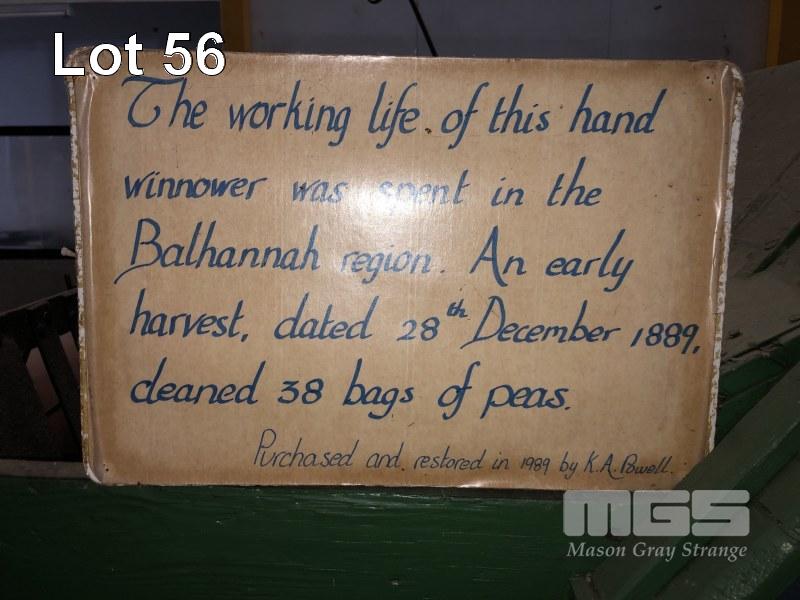 Lot 56
The working life of this hand
winnower was spent in the
Balhannah region. An early
harvest, dated 28th December 1889,
cleaned 38 bags of peas.
Purchased and restored in 1989 by K.A. Powell.
MGS
Mason Gray Strange